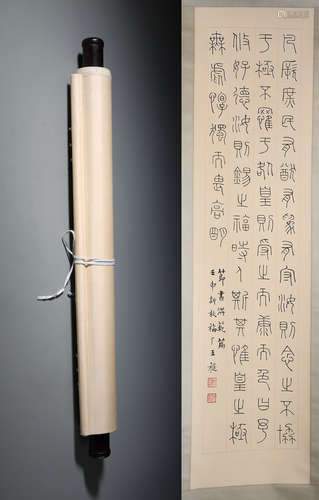 凡厥庶民有猷有為有守汝則念之不協
于極不罹于咎皇則受之而康而色曰予
攸好德汝則錫之福時人斯其惟皇之極
無虐惸獨而畏高明
節書洪範篇
壬申新秋福厂王禔